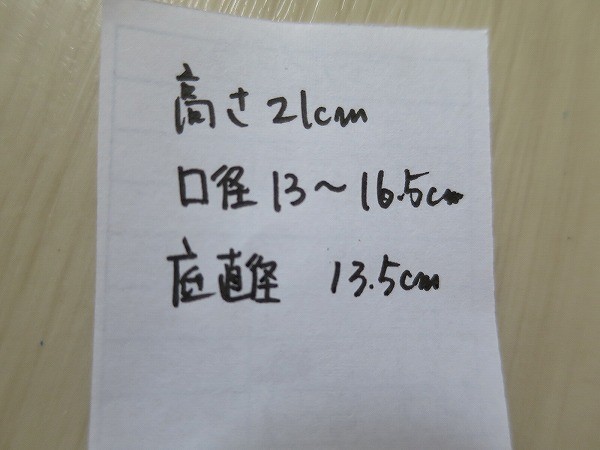 高さ21cm
口径13～16.5cm
底直径 13.5cm